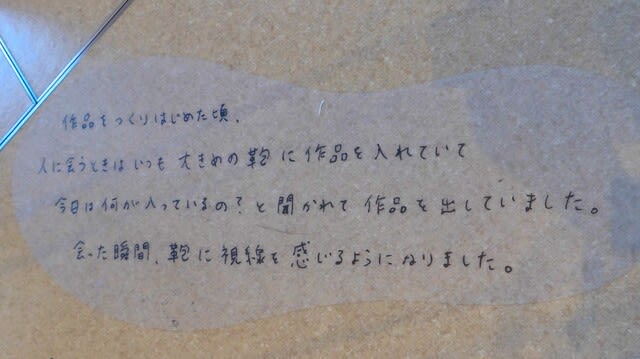 作品をつくりはじめた頃、
人に会うときはいつも大きめの鞄に作品を入れていて
今日は何が入っているの?と聞かれて作品を出していました。
会った瞬間、鞄に視線を感じるようになりました。